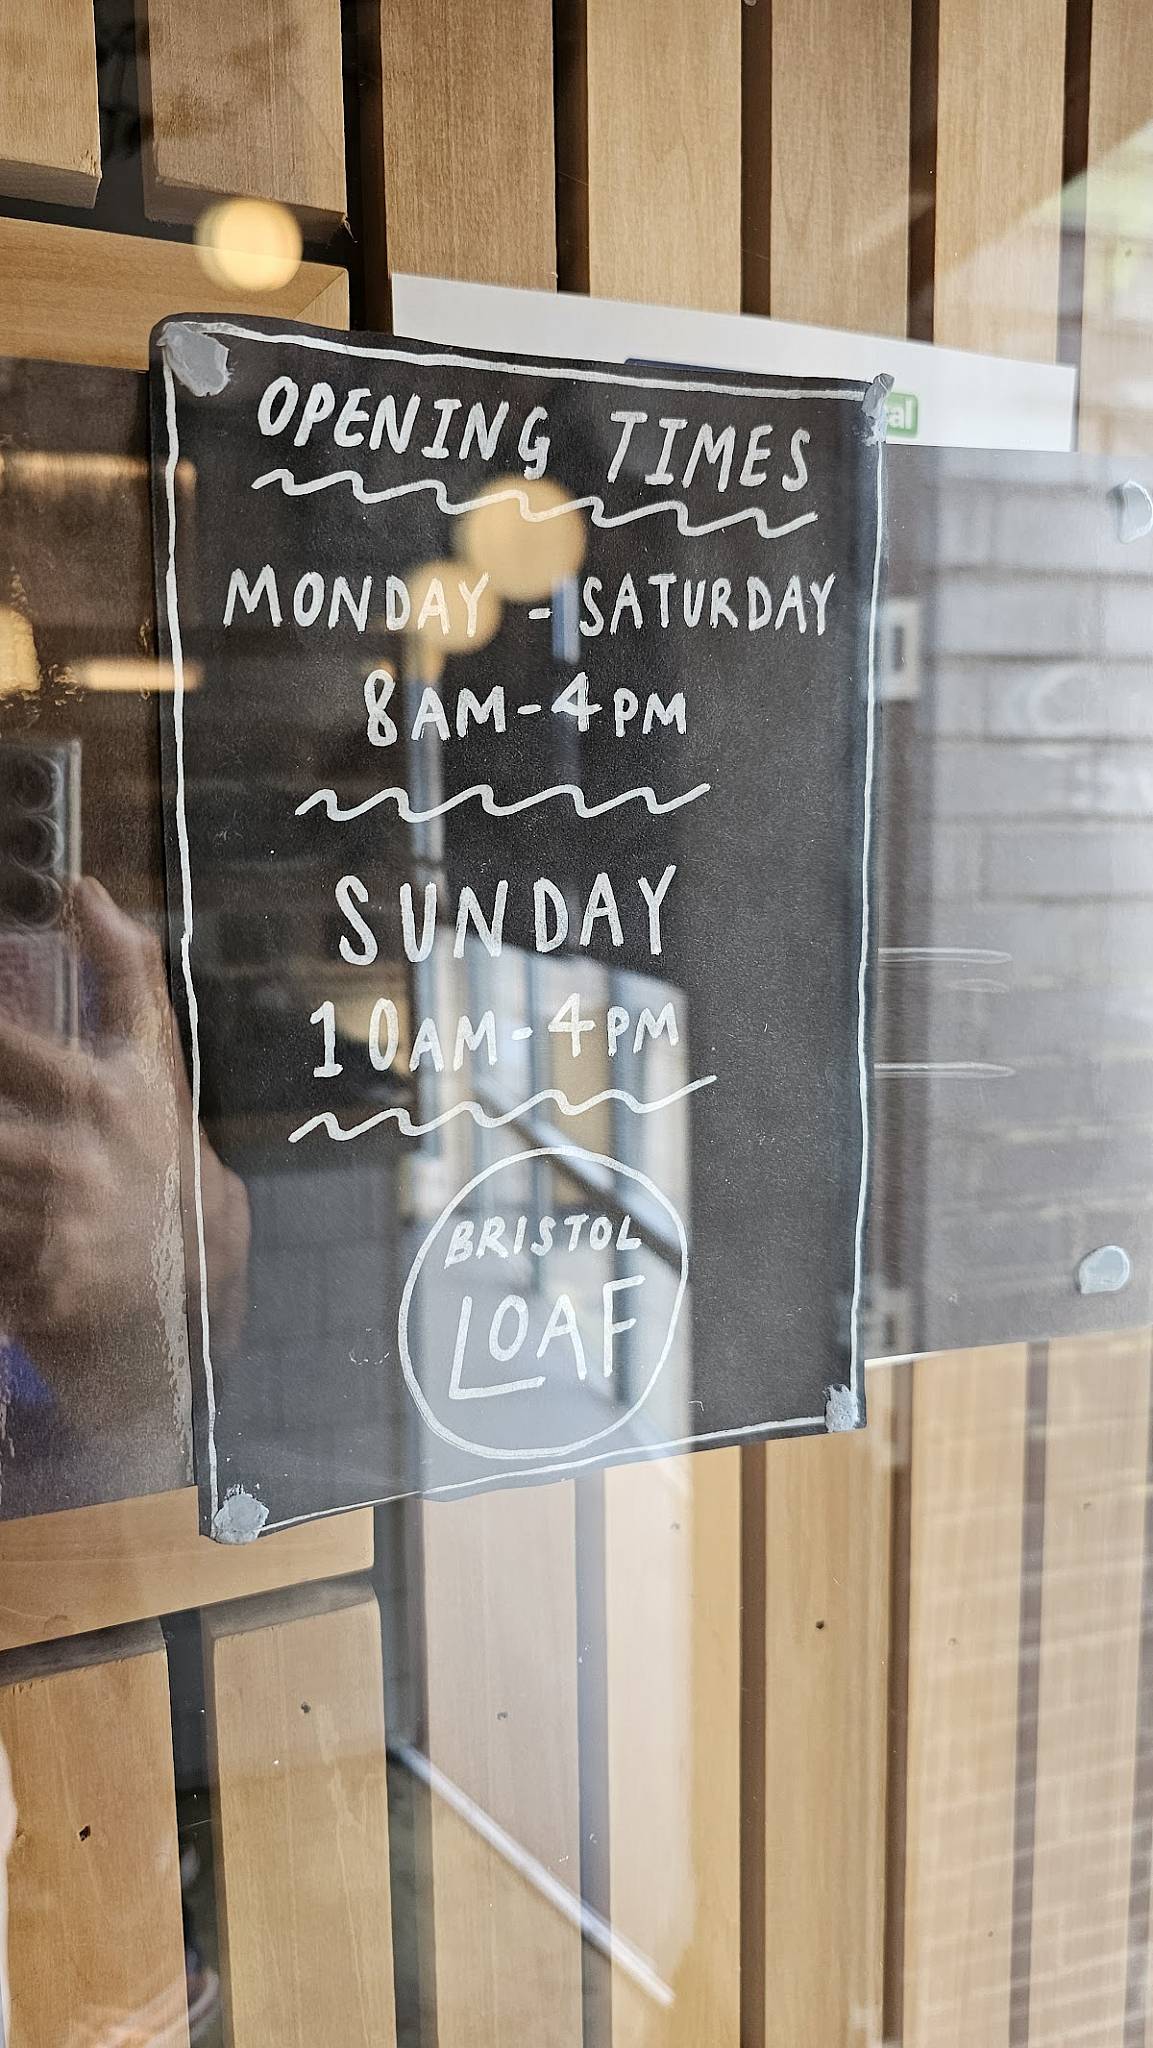 OPENING TIMES
MONDAY - SATURDAY
8AM-4PM
SUNDAY
10AM-4PM
BRISTOL
LOAF